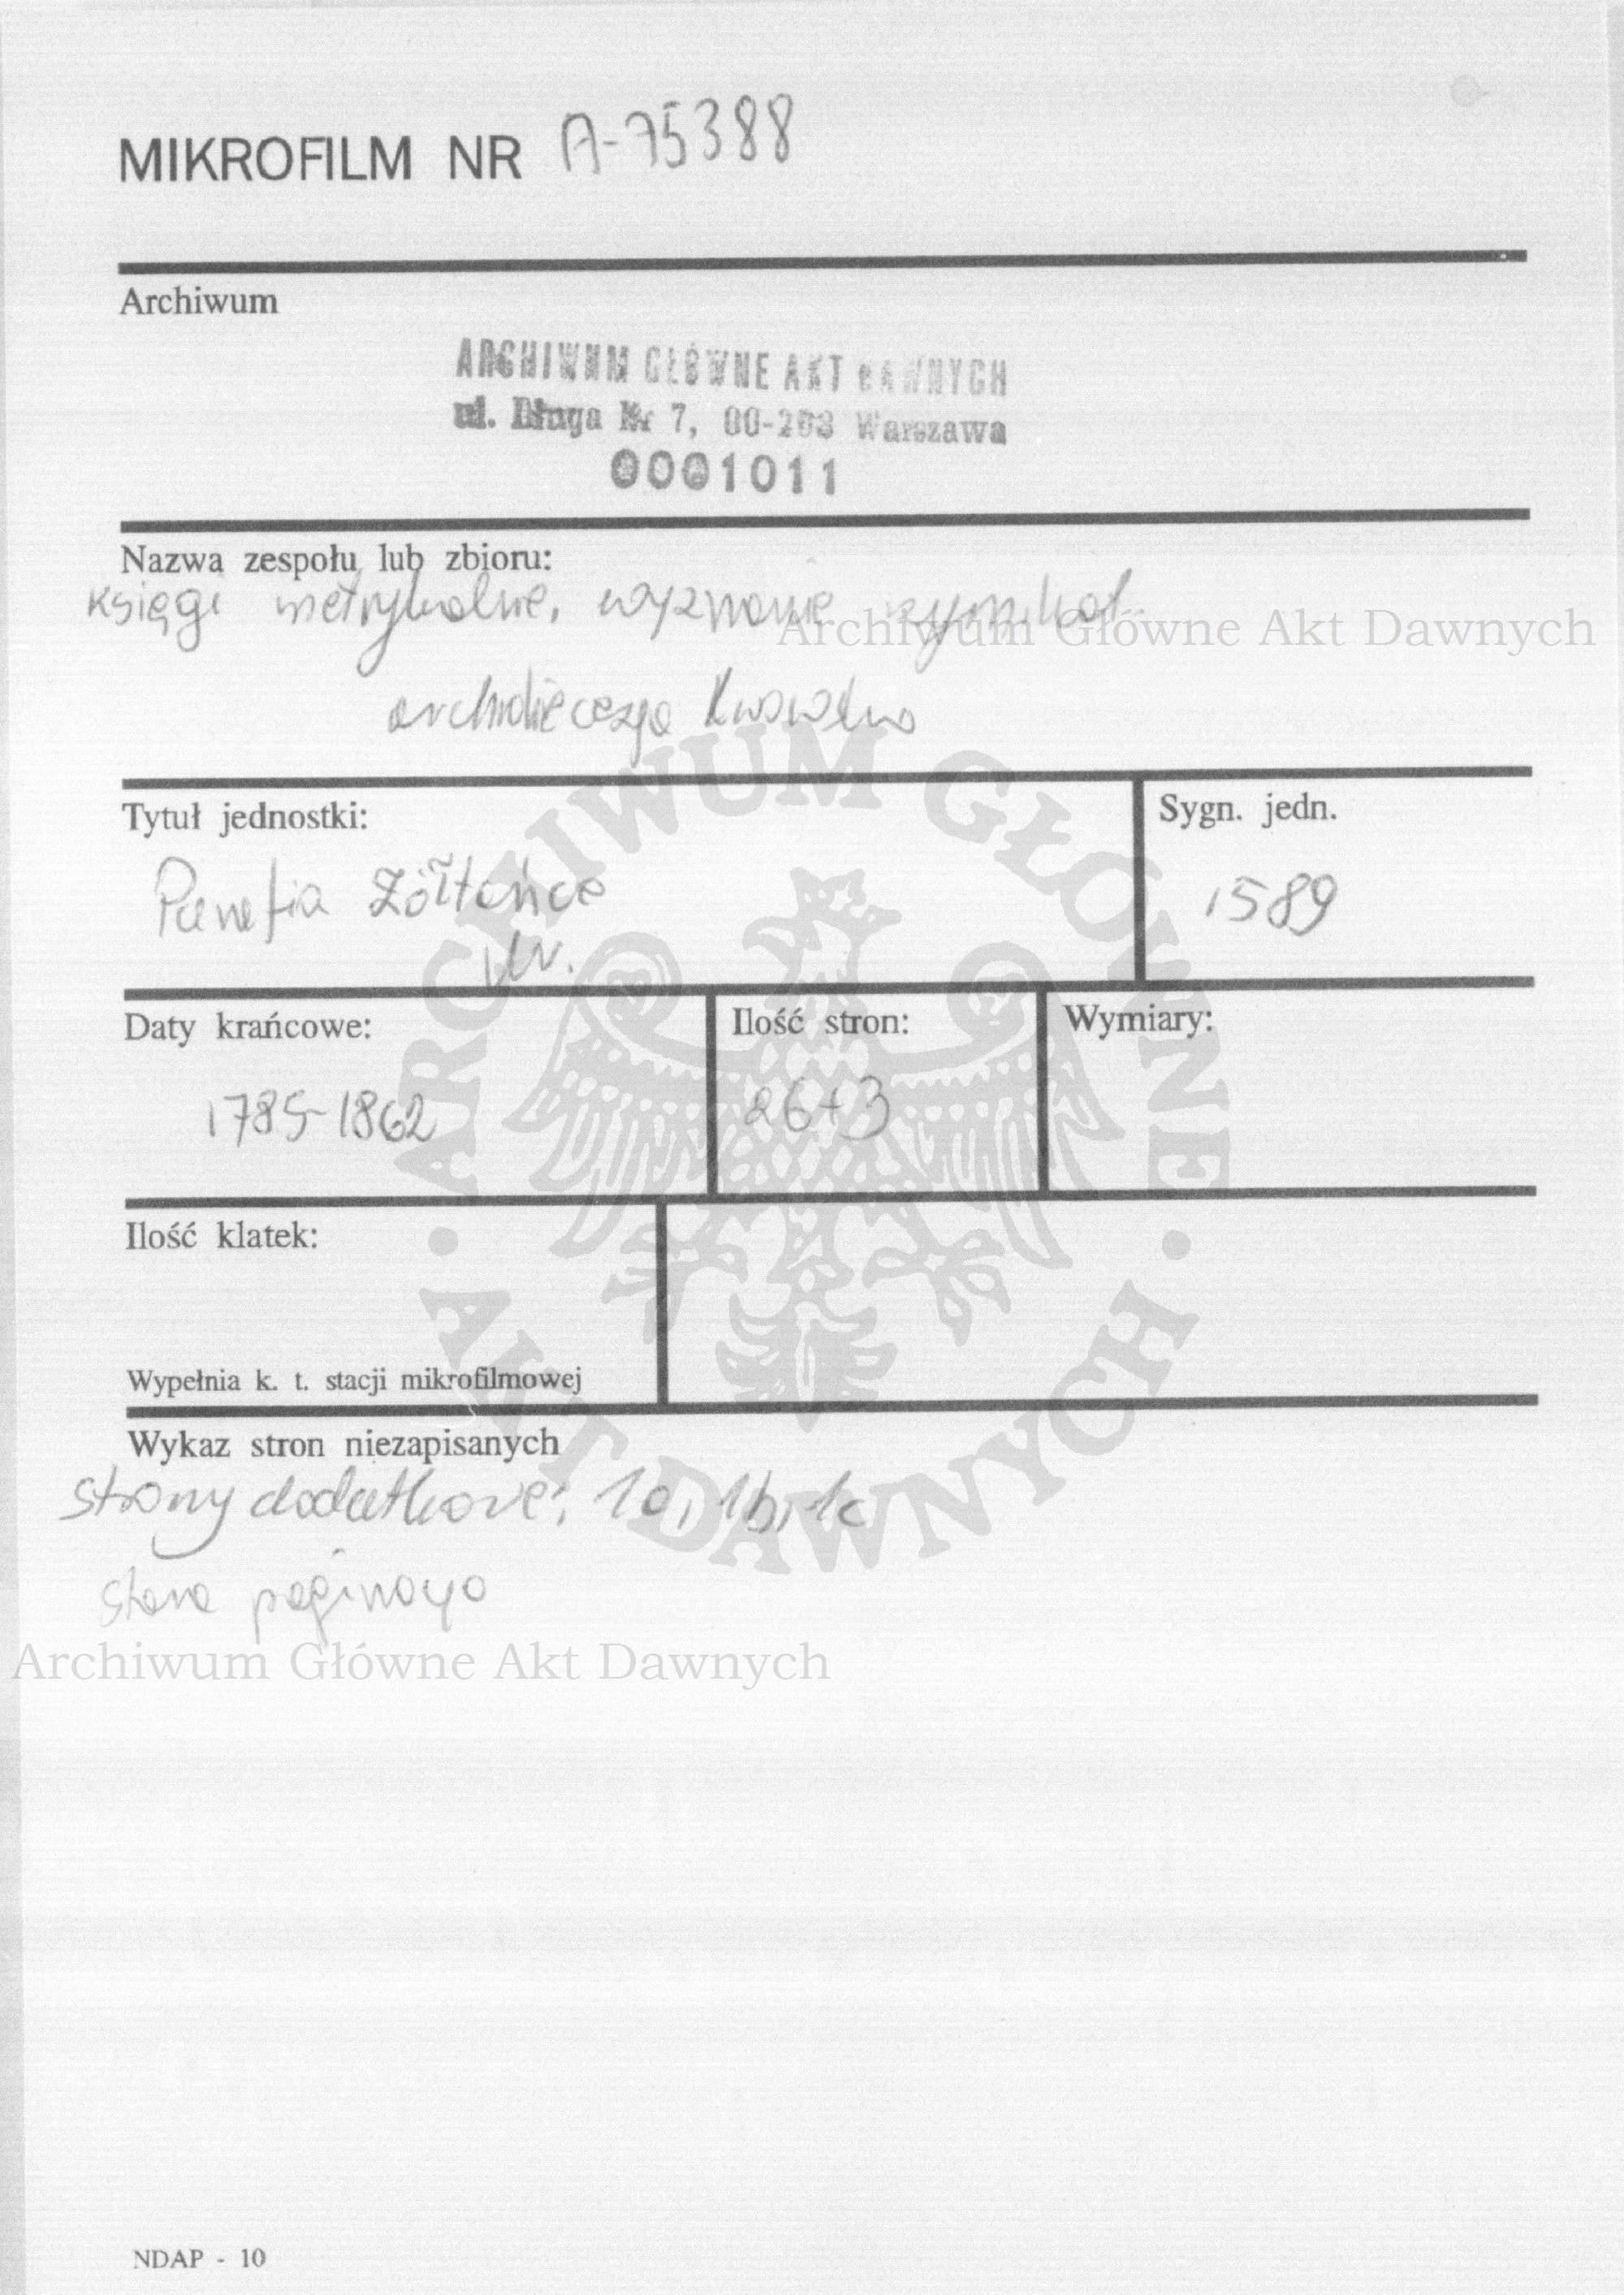 MIKROFILM NR A-75388
Archiwum
ARCHIWUM GŁÓWNE AKT DAWNYCH
ul. Długa Nr 7, 00-263 Warszawa
0001011
Nazwa zespołu lub zbioru:
księgi metrykalne, wyznanie rzymkat.
Archiwum Główne Akt Dawnych
archidiecezja lwowska
Tytuł jednostki:
Sygn. jedn.
Parafia Żółtańce
1589
Daty krańcowe:
Ilość stron:
Wymiary:
1785-1862
26+3
Ilość klatek:
Wypełnia k. t. stacji mikrofilmowej
Wykaz stron niezapisanych
strony dodatkowe: 1a, 1b, 1c
stara paginacja
Archiwum Główne Akt Dawnych
ARCHIWUM GŁÓWNE
AKT DAWNYCH
NDAP - 10